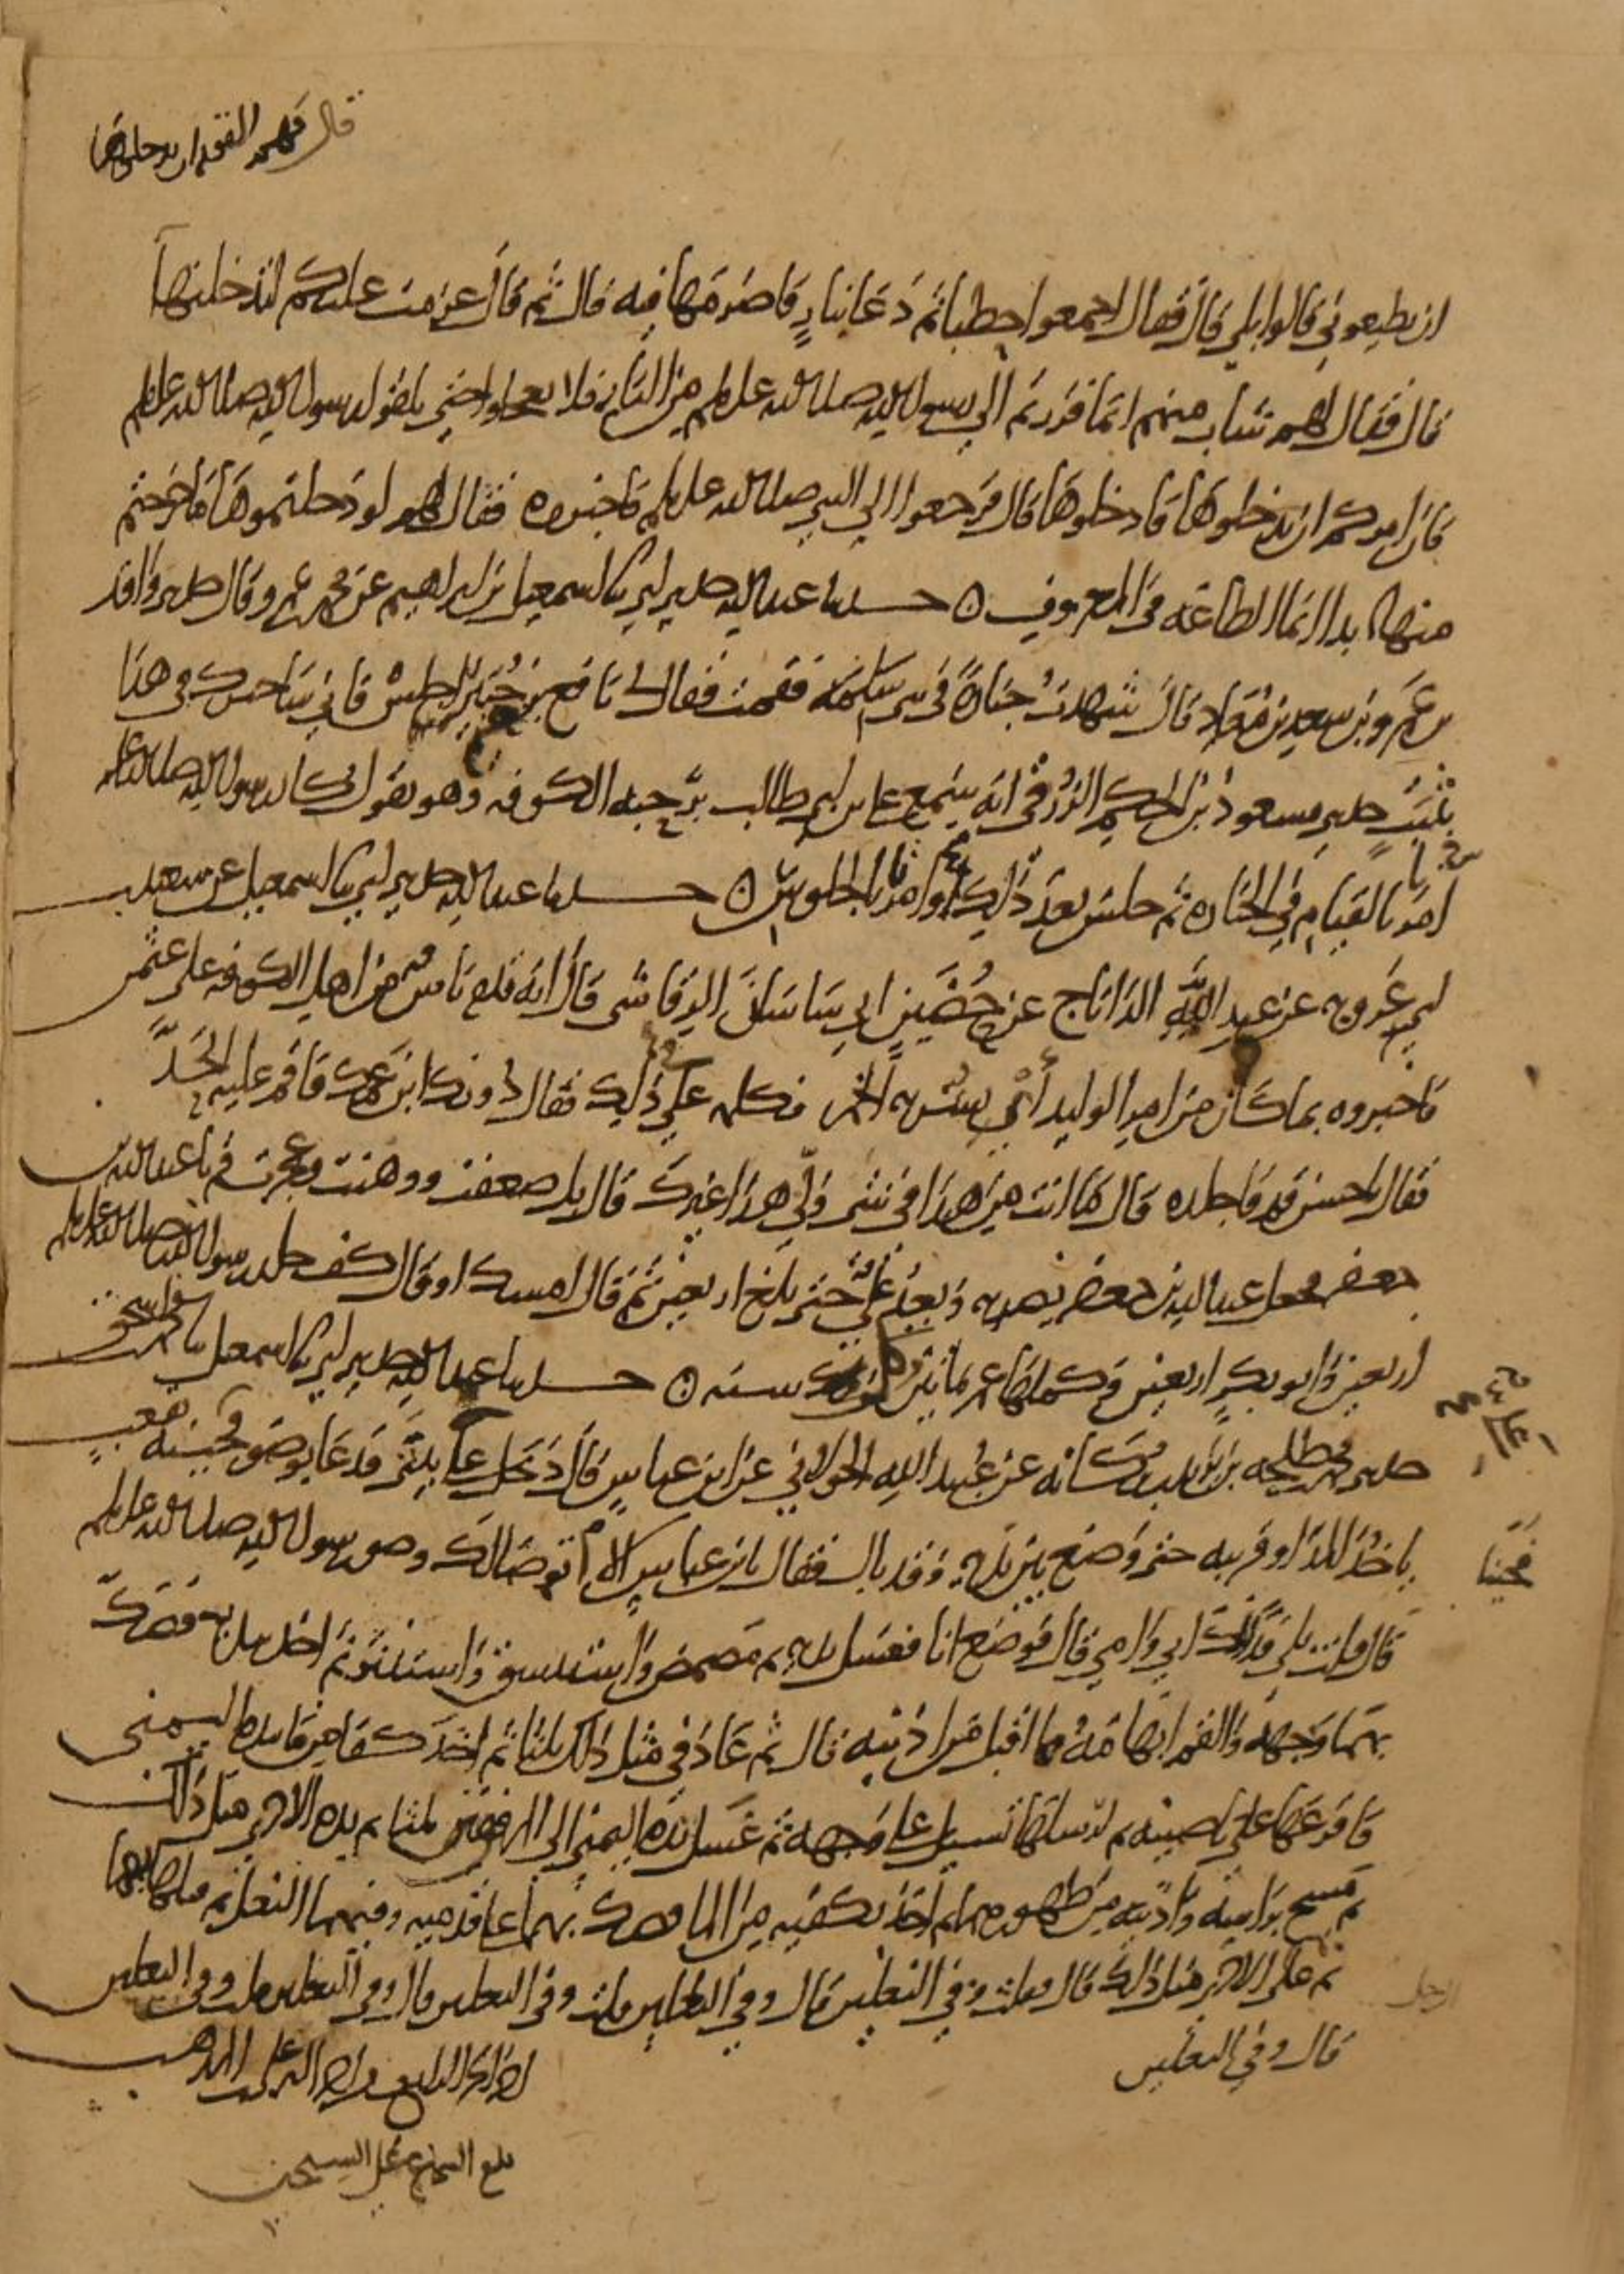 قال فهم القوم ان يدخلوها
ان تطيعوني قالوا بلى قال فقال اجمعوا حطبا ثم دعا بنار فاضرمها فيه قال ثم قال عزمت عليكم لتدخلنها
قال فقال لهم شاب منهم انما فررتم الى رسول الله صلى الله عليه وسلم من النار فلا تعجلوا حتى تلقوا رسول الله صلى الله عليه وسلم
فان امركم ان تدخلوها فادخلوها قال فرجعوا الى النبي صلى الله عليه وسلم فاخبروه فقال لهم لو دخلتموها ما خرجتم
منها ابدا انما الطاعة في المعروف ه حدثنا عبد الله حدثني ابي نا اسمعيل بن ابرهيم عن محمد بن عمرو قال حدثني واقد
بن عمرو بن سعد بن معاذ قال شهدت جنازة في بني سلمة فقمت فقال لي نافع بن جبير اجلس فاني ساخبرك في هذا
بثبت حدثني مسعود بن الحكم الزرقي انه سمع علي بن ابي طالب برحبة الكوفة وهو يقول كان رسول الله صلى الله عليه
امرنا بالقيام في الجنازة ثم جلس بعد ذلك وامرنا بالجلوس ه حدثنا عبد الله حدثني ابي نا اسمعيل عن سعيد بن
ابي عروبة عن عبد الله الداناج عن حضين ابي ساسان الرقاشي قال انه قدم ناس من اهل الكوفة على عثمن
فاخبروه بما كان من امر الوليد أي بشربه الخمر فكلمه علي في ذلك فقال دونك ابن عمك فاقم عليه الحد
فقال يا حسن قم فاجلده قال ما انت من هذا في شي ولي هذا غيرك قال بل ضعفت ووهنت وعجزت قم يا عبد الله بن
جعفر فجعل عبد الله بن جعفر يضربه ويعد علي حتى بلغ اربعين ثم قال امسك او قال كف جلد رسول الله صلى الله عليه وسلم
اربعين وابو بكر اربعين وكملها عمر ثمانين وكل سنة ه حدثنا عبد الله حدثني ابي نا اسمعيل نا محمد بن اسحق
حدثني محمد بن طلحة بن يزيد بن ركانة عن عبيد الله الخولاني عن ابن عباس قال دخل علي بيتي فدعا بوضو فجئته بقعب
فجئنا
ياخذ المد او قريبه حتى وضع بين يديه وقد بال فقال يا بن عباس الا اتوضا لك وضو رسول الله صلى الله عليه وسلم
قال قلت بلى فداك ابي وامي قال فوضع انا فغسل يديه ثم مضمض واستنشق واستنثر ثم اخذ بيديه فصك
بهما وجهه والقم ابهامه ما اقبل من اذنيه قال ثم عاد في مثل ذلك ثلثا ثم اخذ كفا من ما بيده اليمنى
فافرغها على ناصيته ثم ارسلها تسيل على وجهه ثم غسل يده اليمنى الى المرفق ثلثا ثم يده الاخرى مثل ذلك
ثم مسح براسه واذنيه من ظهورهما ثم اخذ بكفيه من الما فصك بهما على قدميه وفيهما النعل ثم قلبها بها
ثم على الاخرى مثل ذلك قال فقلت وفي النعلين قال وفي النعلين قلت وفي النعلين قال وفي النعلين قلت وفي النعلين
الرجل
قال وفي النعلين